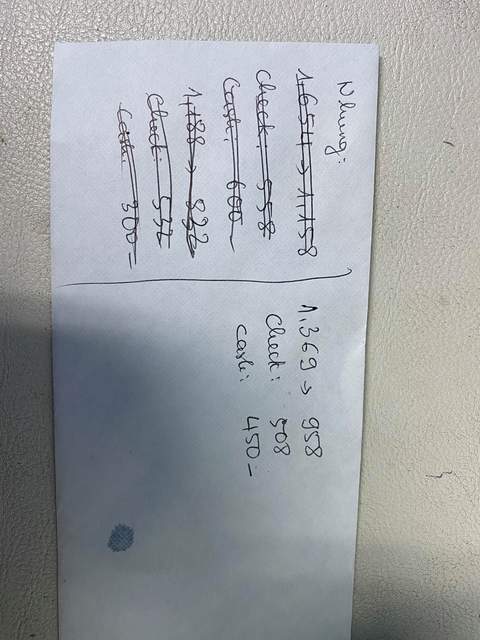 Nhung:
1,654 → 1.158
Check: 558
Cash: 600 –
1,188 → 832
Check: 532
Cash: 300 –
1,369 → 958
Check: 508
Cash: 450 –